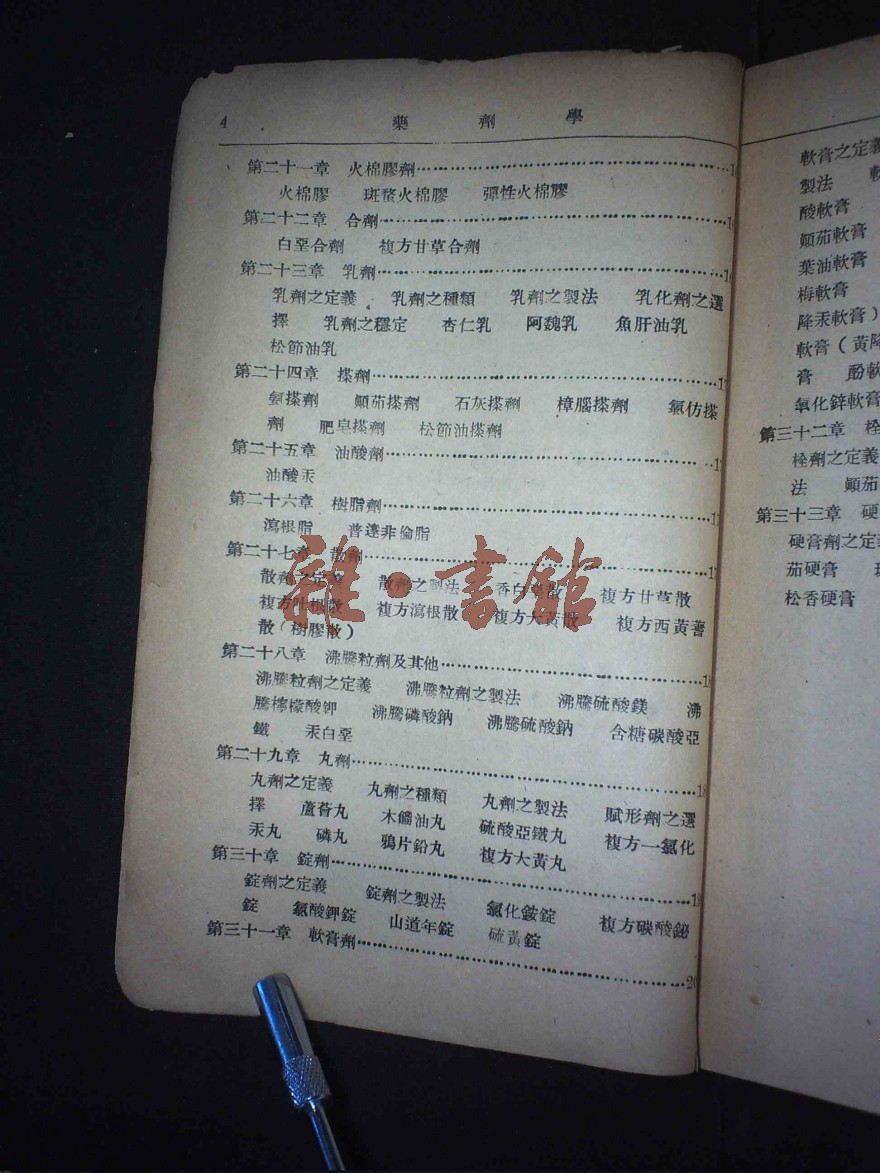 4 藥劑學
第二十一章 火棉膠劑
火棉膠 斑蝥火棉膠 彈性火棉膠
第二十二章 合劑
白堊合劑 複方甘草合劑
第二十三章 乳劑
乳劑之定義 乳劑之種類 乳劑之製法 乳化劑之選
擇 乳劑之穩定 杏仁乳 阿魏乳 魚肝油乳
松節油乳
第二十四章 搽劑
氨搽劑 顛茄搽劑 石灰搽劑 樟腦搽劑 氯仿搽
劑 肥皂搽劑 松節油搽劑
第二十五章 油酸劑
油酸汞
第二十六章 樹脂劑
瀉根脂 普達非倫脂
第二十七章 散劑
散劑之定義 散劑之製法 香白堊散 複方甘草散
複方吐根散 複方瀉根散 複方大黃散 複方西黃蓍
散(樹膠散)
第二十八章 沸騰粒劑及其他
沸騰粒劑之定義 沸騰粒劑之製法 沸騰硫酸鎂 沸
騰檸檬酸鉀 沸騰磷酸鈉 沸騰硫酸鈉 含糖碳酸亞
鐵 汞白堊
第二十九章 丸劑
丸劑之定義 丸劑之種類 丸劑之製法 賦形劑之選
擇 蘆薈丸 木餾油丸 硫酸亞鐵丸 複方一氯化
汞丸 磷丸 鴉片鉛丸 複方大黃丸
第三十章 錠劑
錠劑之定義 錠劑之製法 氯化銨錠 複方碳酸鉍
錠 氯酸鉀錠 山道年錠 硫黃錠
第三十一章 軟膏劑 20
雜·書館
軟膏之定義
製法 軟
酸軟膏
顛茄軟膏
葉油軟膏
梅軟膏
降汞軟膏)
軟膏(黃降
膏 酚軟
氧化鋅軟膏
第三十二章 栓
栓劑之定義
法 顛茄
第三十三章 硬
硬膏劑之定義
茄硬膏
松香硬膏